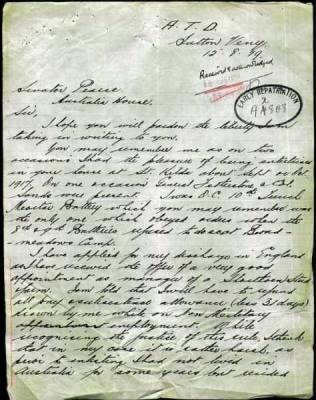 A. T. D.
Sutton Veny
12. 8. 19.
Received & acknowledged
EARLY REPATRIATION
Senator Pearce
Australia House.
Sir,
I hope you will pardon the liberty I am
taking in writing to you.
You may remember me as on two
occasions I had the pleasure of being entertained
in your house at St. Kilda about Sept & Oct
1917. On one occasion General Fetherstone & Col.
was present. I was O.C. 10th French
Mortar Battery which you may remember was
the only one which obeyed orders when the
8th & 9th Batteries refused to desert Broad-
meadows Camp.
I have applied for my discharge in England
and have received the offer of a very good
appointment as secretary to a
firm. I am told that I will have to refund
all my subsistence allowance (less 31 days)
drawn by me while on Non Military
employment. While
recognising the justice of this rule I think
that in my case it is rather harsh, as
prior to enlisting I had not lived in
Australia for some years but resided